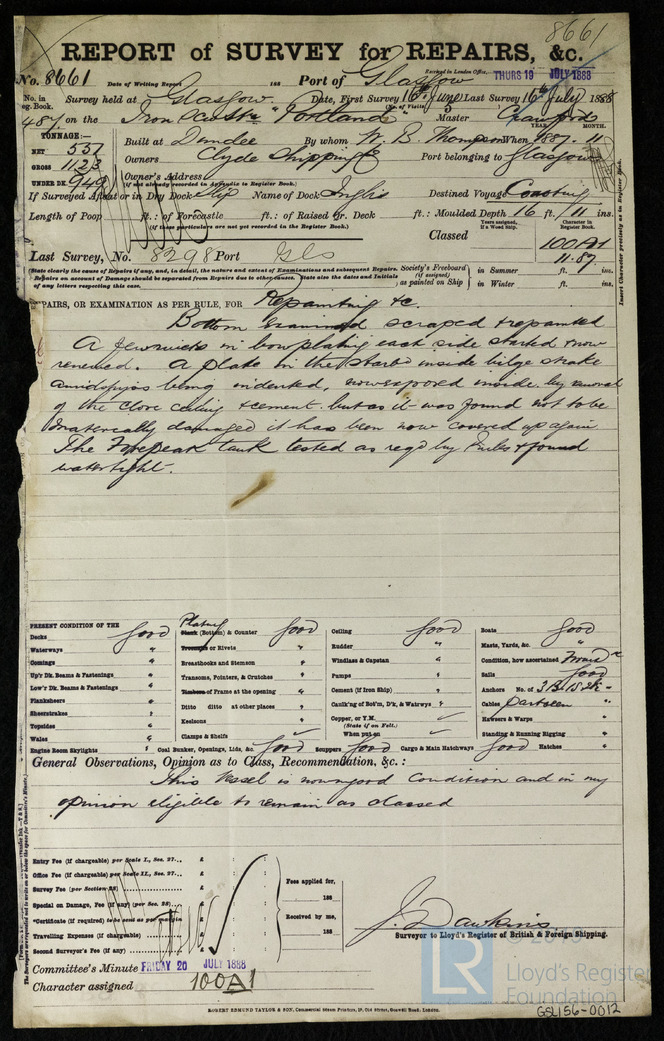 8661
REPORT of SURVEY for REPAIRS, &c.
No. 8661 Date of Writing Report 188 Port of Glasgow Received in London Office, THURS 19 JULY 1888
No. in Reg. Book. Survey held at Glasgow. Date, First Survey 16th June Last Survey 16th July 1888
487 on the Iron "Portland" Master Crawford
TONNAGE:— YEAR. MONTH.
NET 557 Built at Dundee By whom W. B. Thompson When 1887. 11
GROSS 1123 Owners Clyde Shipping Co Port belonging to Glasgow
UNDER DK. 940 Owner's Address
(if not already recorded in Appendix to Register Book.)
If Surveyed Afloat or in Dry Dock Slip Name of Dock Inglis Destined Voyage Coasting
Length of Poop ft.: of Forecastle ft.: of Raised Qr. Deck ft.: Moulded Depth 16 ft. 11 ins.
(if these particulars are not yet recorded in the Register Book.)
Years assigned, if a Wood Ship. Character in Register Book.
Classed 100A1
11.87
Last Survey, No. 8298 Port Gls
(State clearly the cause of Repairs if any, and, in detail, the nature and extent of Examinations and subsequent Repairs. Repairs on account of Damage should be separated from Repairs due to other causes. State also the dates and Initials of any letters respecting this case.
Society's Freeboard (if assigned) as painted on Ship } in Summer ft. ins.
in Winter ft. ins.
REPAIRS, OR EXAMINATION AS PER RULE, FOR Repainting &c.
Bottom examined scraped & repainted
A few rivets in bow plating each side started & now
renewed. A plate in the starbd inside bilge strake
amidships being indented, now exposed inside by removal
of the close ceiling & cement but as it was found not to be
materially damaged it has been now covered up again
The Forepeak tank tested as reqd by Rules & found
watertight.
PRESENT CONDITION OF THE
Decks Good
Waterways "
Comings "
Up'r Dk. Beams & Fastenings "
Low'r Dk. Beams & Fastenings "
Planksheers "
Sheerstrakes "
Topsides "
Wales "
Engine Room Skylights "
Plating
Plank (Bottom) & Counter Good
Treenails or Rivets "
Breasthooks and Stemson "
Transoms, Pointers, & Crutches "
Timbers of Frame at the opening "
Ditto ditto at other places "
Keelsons "
Clamps & Shelfs "
Coal Bunker, Openings, Lids, &c. Good
Ceiling Good
Rudder "
Windlass & Capstan "
Pumps "
Cement (if Iron Ship) "
Caulk'ng of Bot'm, D'k, & Watrwys "
Copper, or Y.M.
(State if on Felt.)
When put on
Scuppers Good Cargo & Main Hatchways Good Hatches "
Boats Good
Masts, Yards, &c. "
Condition, how ascertained
Sails Good
Anchors No. of
Cables Part seen "
Hawsers & Warps "
Standing & Running Rigging "
General Observations, Opinion as to Class, Recommendation, &c.:
This Vessel is now in good Condition and in my
opinion eligible to remain as classed
Entry Fee (if chargeable) per Scale I., Sec. 27... £ : :
Office Fee (if chargeable) per Scale II., Sec. 27.. £ : :
Survey Fee (per Section 28) £ : :
Special on Damage, Fee (if any) (per Sec. 28) £ : :
*Certificate (if required) to be sent as per margin £ : :
Travelling Expenses (if chargeable) £ : :
Second Surveyor's Fee (if any) £ : :
Fees applied for,
188
Received by me,
188
J. Dawkins
Surveyor to Lloyd's Register of British & Foreign Shipping.
Committee's Minute FRIDAY 20 JULY 1888
Character assigned 100A1
ROBERT EDMUND TAYLOR & SON, Commercial Steam Printers, 19, Old Street, Goswell Road, London.
Insert Character precisely as in Register Book.
LR
Lloyd's Register
Foundation
GSL156-0012